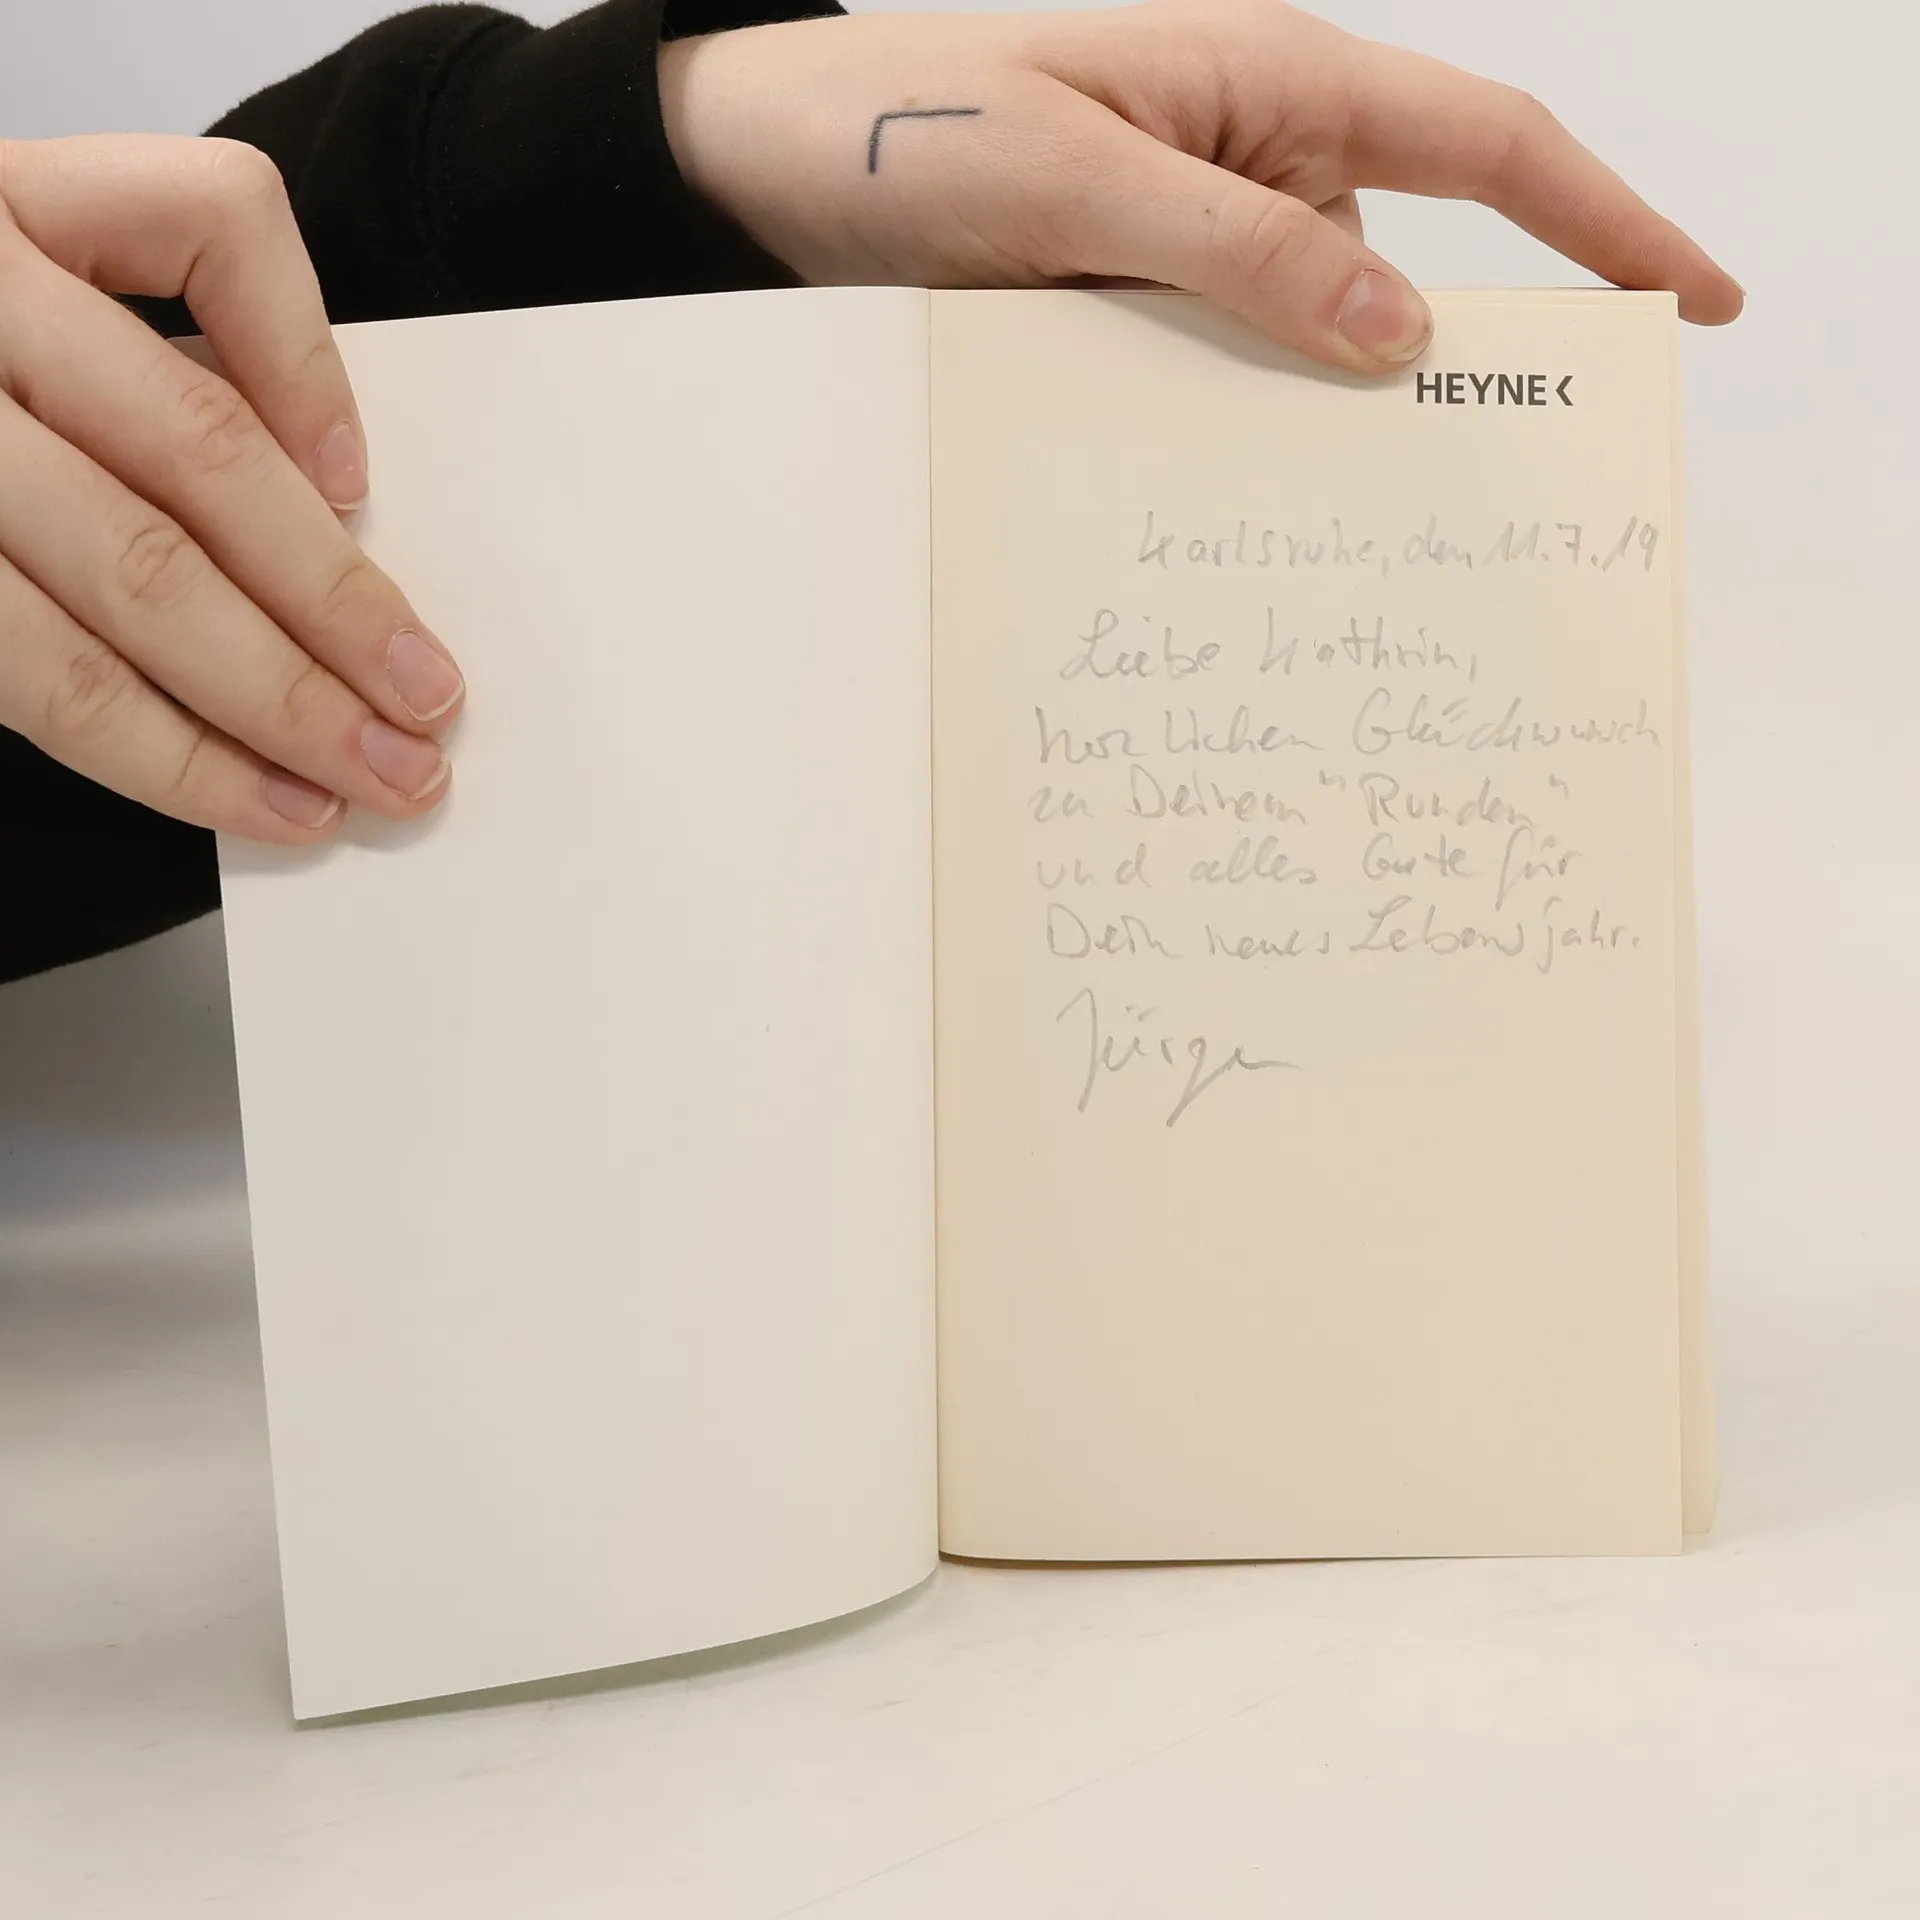 HEYNE<
Karlsruhe, den 11.7.19
Liebe Kathrin,
herzlichen Glückwunsch
zu Deinem "Runden"
und alles Gute für
Dein neues Lebensjahr.
Jürgen